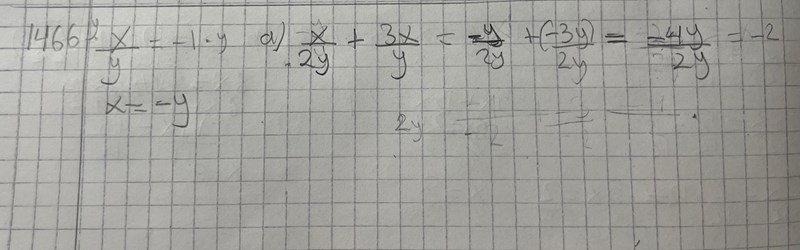 1466 x/y = -1 · y а) x/2y + 3x/y = -y/2y + (-3y)/2y = -4y/2y = -2
x = -y
2y